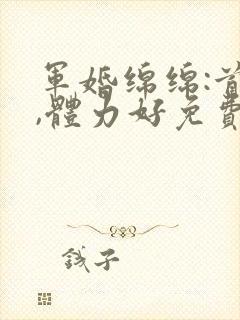 軍婚綿綿:首
,體力好免費
錢子